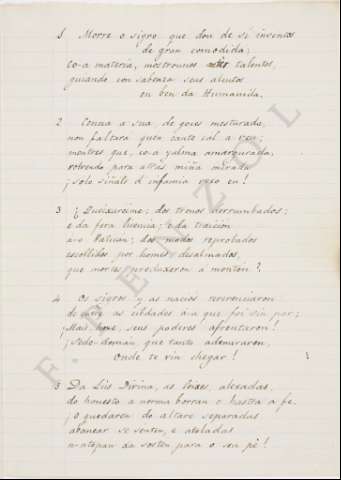 1 Morre o sigro que dou de si inventos
de gran comodida;
co-a materia, mostrounos talentos,
guiando con sabenza seus alentos
en ben da Humanida.
2 Conua a sua, de goces mesturada,
non faltará quen cante cal a veu;
mentres que, co-a yalma amargurada,
volvendo para atrás miña mirada
¡solo sinales d'infamia vexo eu!
3 ¡¿Queixareime; dos tronos derrumbados;
e da fera e da traición
a-o Vatican; dos modos reprobados
escollidos por homes desalmados,
que mortes produxeron a montón?
4 Os sigros y as nacios reverenciaron
de entre as cibdades á-a que foi sin par;
¡Mais hoxe, seus poderes afrontaron!
¡Pedo deman que tanto adouraron,
Onde te vin chegar!
5 Da Lús Divina, as luces alexadas,
do honesto a norma borran e hastra a fe.
¡o quedaren do altare separadas
abonear se senten, e atoladas
n-atopan da sosten para o seu pé!
F. FRENZOL